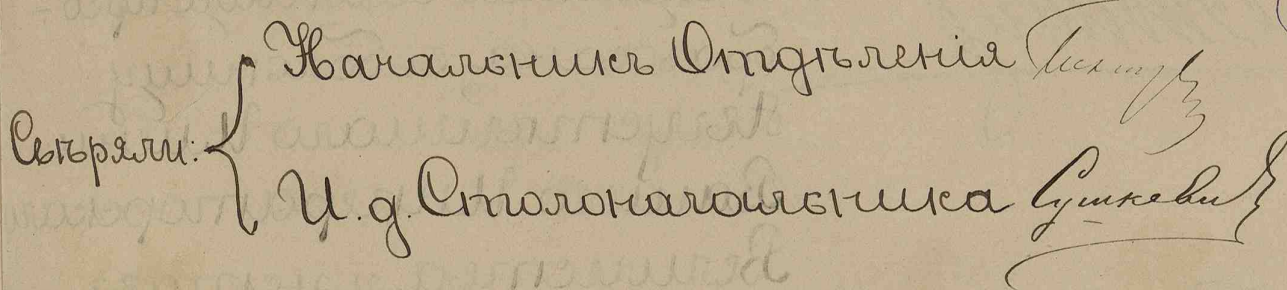 Свѣряли:
Начальникъ Отдѣленія
И. д. Столоначальника Сушкевич